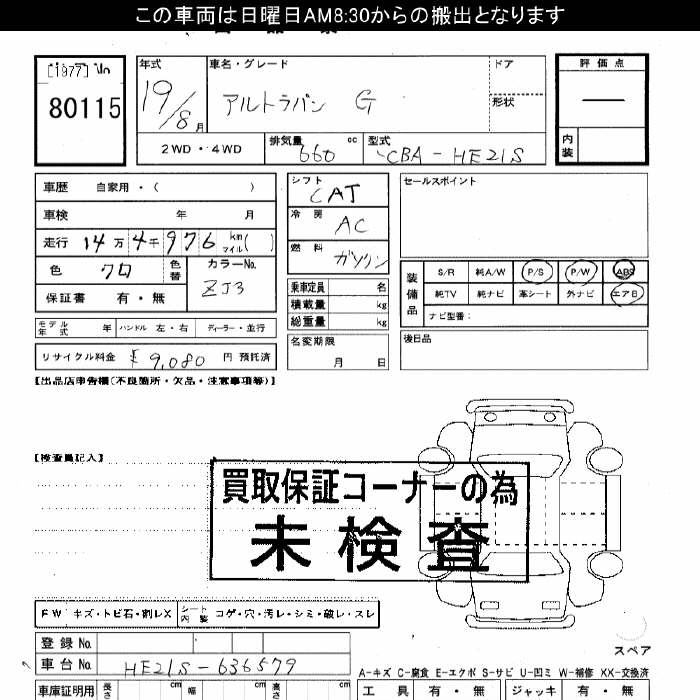 この車両は日曜日AM8:30からの搬出となります
80115
年式
19/8月
車名・グレード
アルトラパン G
ドア
形状
評価点
—
内装
2WD・4WD
排気量 660 cc
型式 CBA-HE21S
車歴 自家用・( )
車検 年 月
走行 14万4千976 km マイル( )
色 クロ 色替
カラーNo. ZJ3
保証書 有・無
シフト CAT
冷房 AC
燃料 ガソリン
乗車定員 名
積載量 kg
総重量 kg
名変期限
月 日
セールスポイント
装備品
S/R 純A/W P/S P/W ABS
純TV 純ナビ 革シート 外ナビ エアB
ナビ型番:
後日品
モデル年式 年 ハンドル 左・右 ディーラー・並行
リサイクル料金 ¥9,080 円 預託済
【出品店申告欄(不良箇所・欠品・注意事項等)】
【検査員記入】
買取保証コーナーの為
未検査
FW キズ・トビ石・割レX
シート内装 コゲ・穴・汚レ・シミ・破レ・スレ
登録No.
車台No. HE21S-636579
スペア
A-キズ C-腐食 E-エクボ S-サビ U-凹ミ W-補修 XX-交換済
車庫証明用 長さ cm 幅 cm 高さ cm
工具 有・無 ジャッキ 有・無